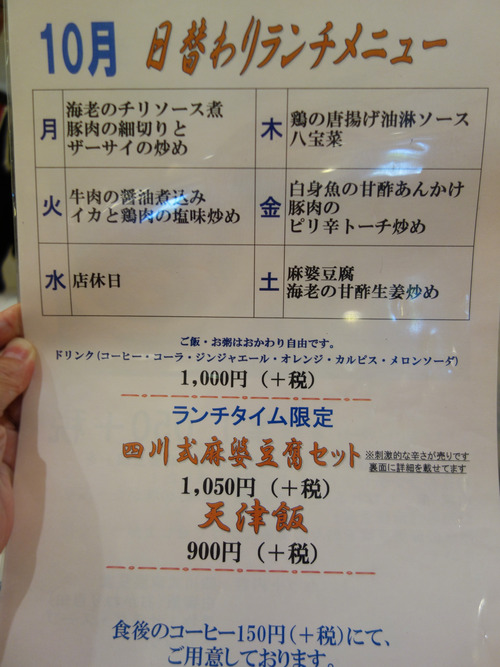 10月 日替わりランチメニュー
月
海老のチリソース煮
豚肉の細切りと
ザーサイの炒め
木
鶏の唐揚げ油淋ソース
八宝菜
火
牛肉の醤油煮込み
イカと鶏肉の塩味炒め
金
白身魚の甘酢あんかけ
豚肉の
ピリ辛トーチ炒め
水
店休日
土
麻婆豆腐
海老の甘酢生姜炒め
ご飯・お粥はおかわり自由です。
ドリンク(コーヒー・コーラ・ジンジャエール・オレンジ・カルピス・メロンソーダ)
1,000円（+税）
ランチタイム限定
四川式麻婆豆腐セット
※刺激的な辛さが売りです
裏面に詳細を載せてます
1,050円（+税）
天津飯
900円（+税）
食後のコーヒー150円(+税)にて、
ご用意しております。